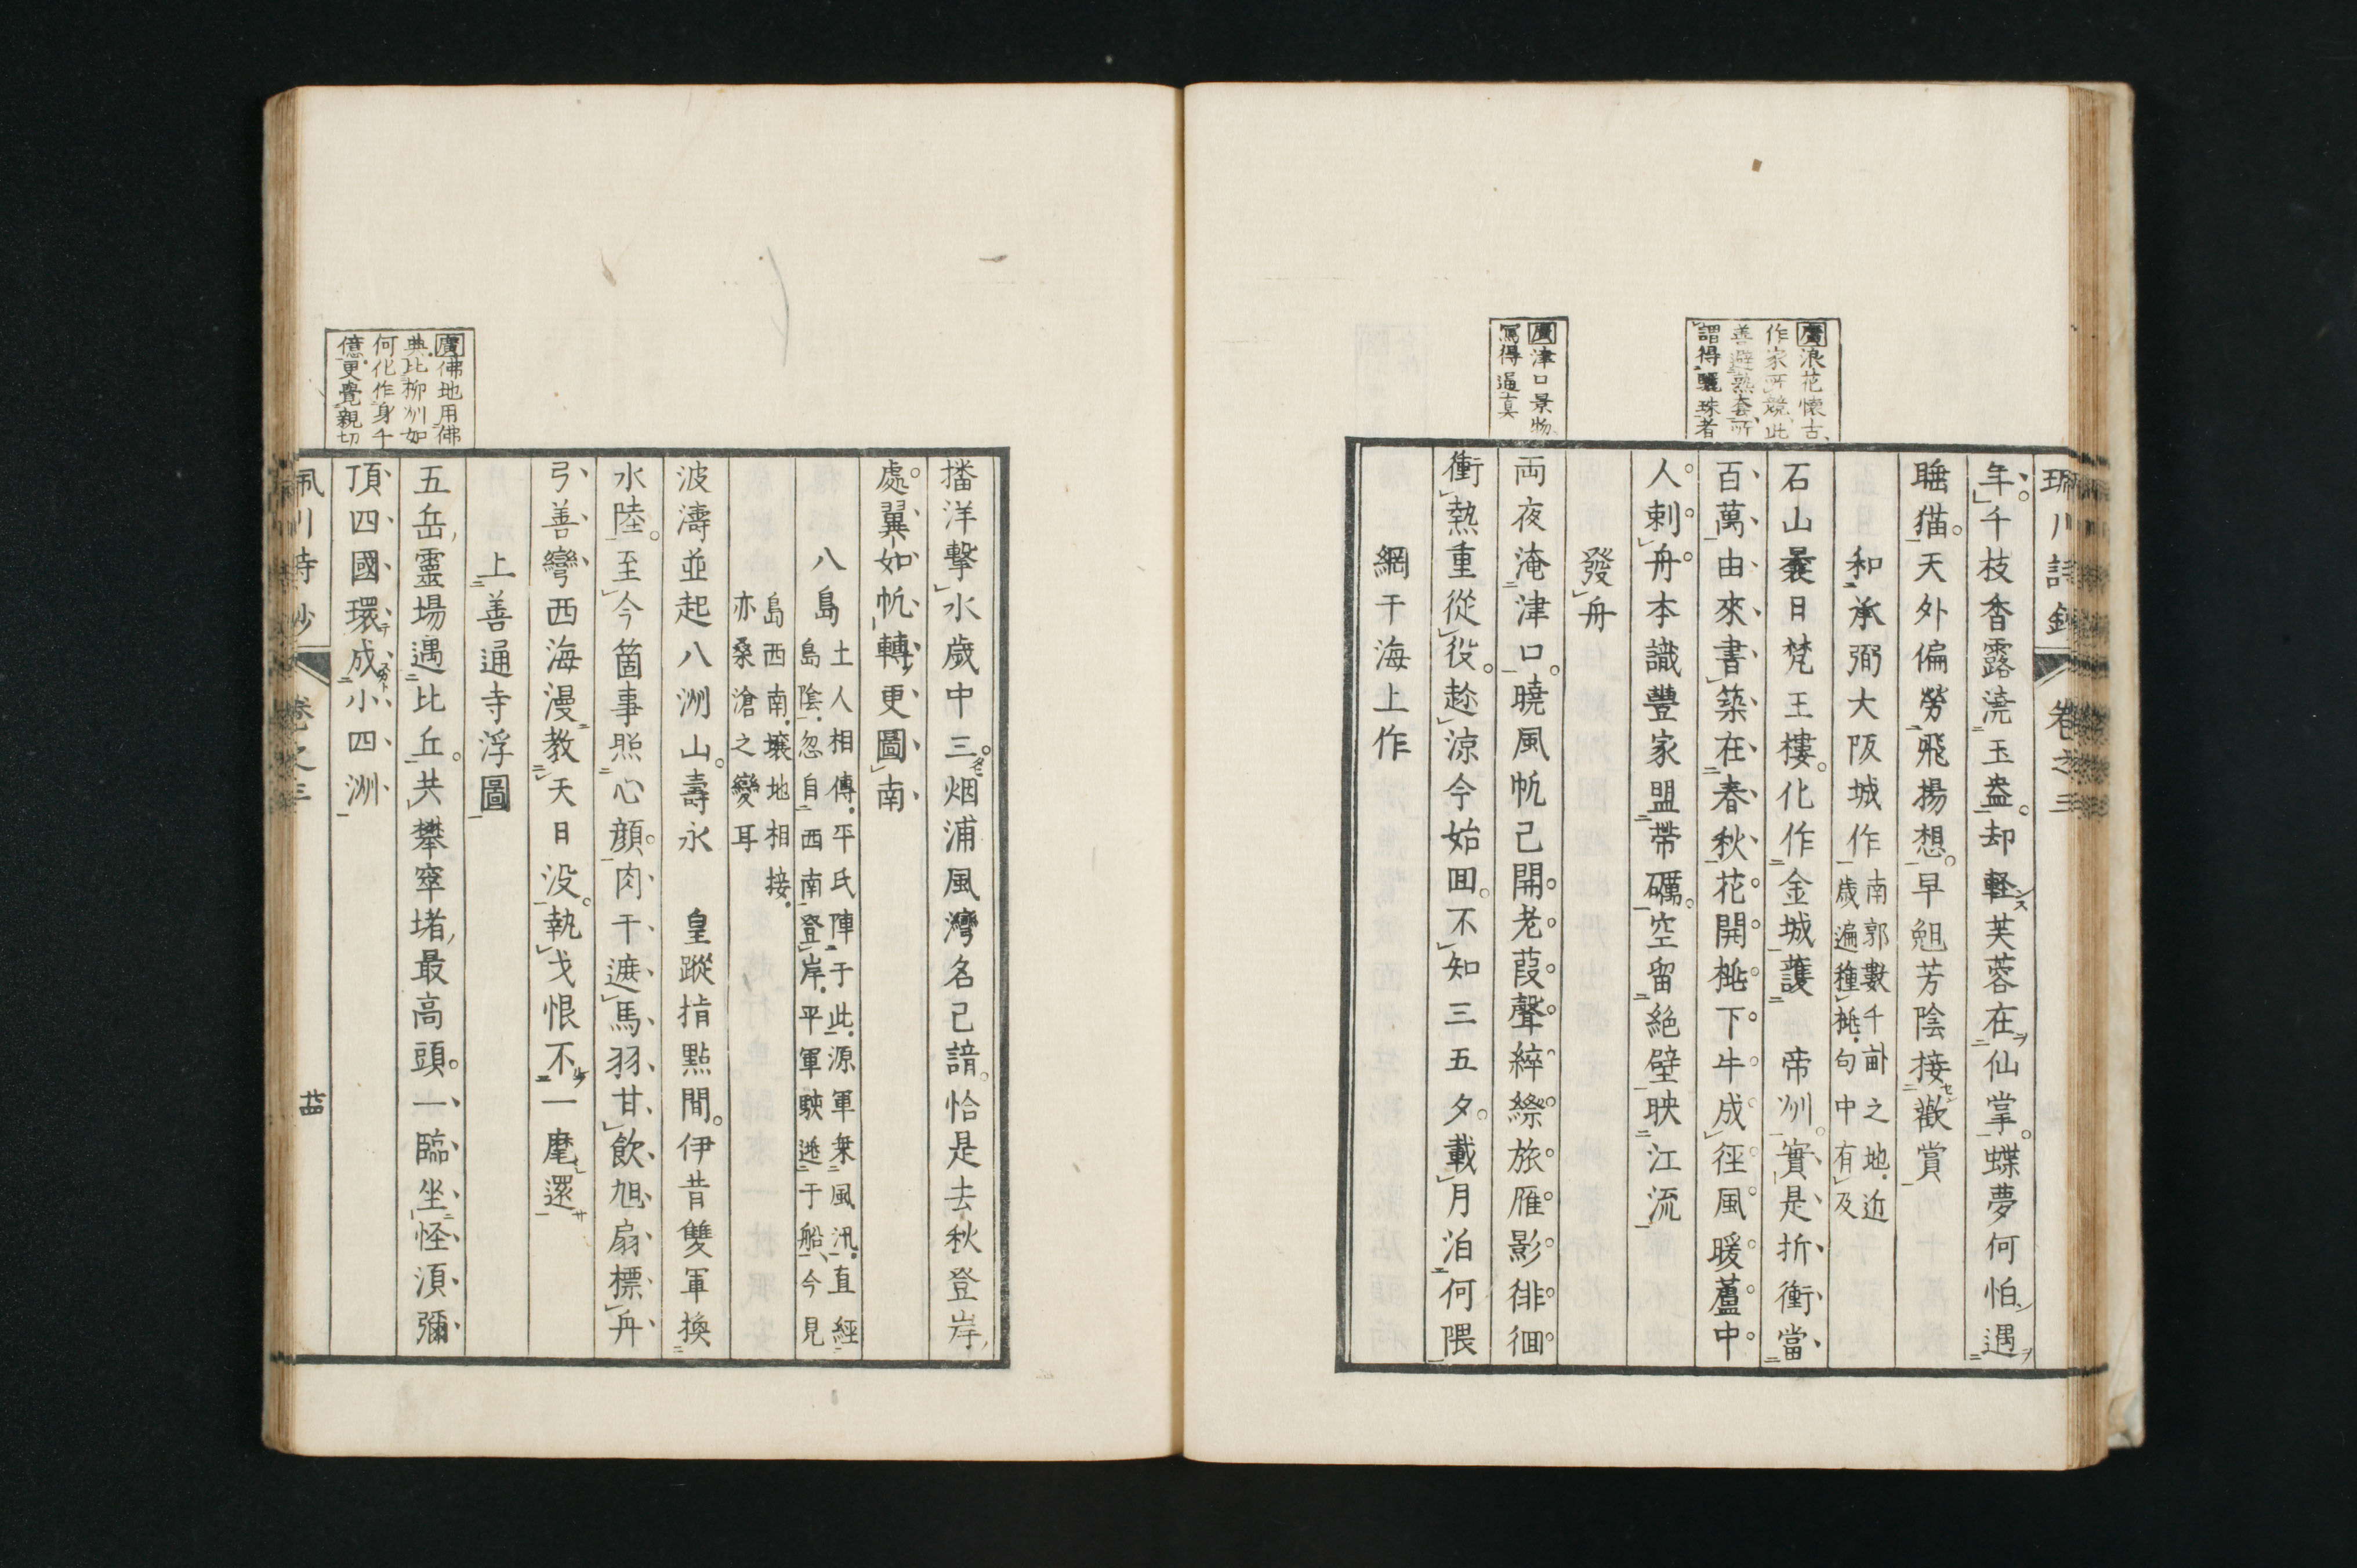 廣浪花懷古
作家所競此
善避熟套所
謂得驪珠者
廣津口景物
寫得逼真
年千枝香露澆玉盎却軽芙蓉在仙掌蝶夢何怕遇
睡猫天外偏勞飛揚想早魁芳陰接歡賞
和承弼大阪城作
南郭數千畝之地近
歲遍種桃句中有及
石山曩日梵王樓化作金城護 帝洲實是折衝當
百萬由來書築在春秋花開桃下牛成徑風暖蘆中
人刺舟本識豐家盟帶礪空留絕壁映江流
發舟
両夜淹津口曉風帆已開老葭聲綷縩旅雁影徘徊
衝熱重從役趁涼今始回不知三五夕載月泊何隈
網干海上作
播洋擊水歲中三烟浦風灣名已諳恰是去秋登岸
處翼如帆轉更圖南
八島
土人相傳平氏陣于此源軍乗風汛直經
島陰忽自西南登岸平軍駛遁于船今見
島西南壤地相接
亦桑滄之變耳
波濤並起八洲山壽永 皇蹤指點間伊昔雙軍換
水陸至今箇事照心顔肉干遮馬羽甘飲旭扇標舟
弓善彎西海漫教天日没執戈恨不一麾還
上善通寺浮圖
五岳靈場遇比丘共攀窣堵最高頭一臨坐怪須彌
頂四國環成小四洲
廣佛地用佛
典比柳州如
何化作身千
億更覺親切
卷之三